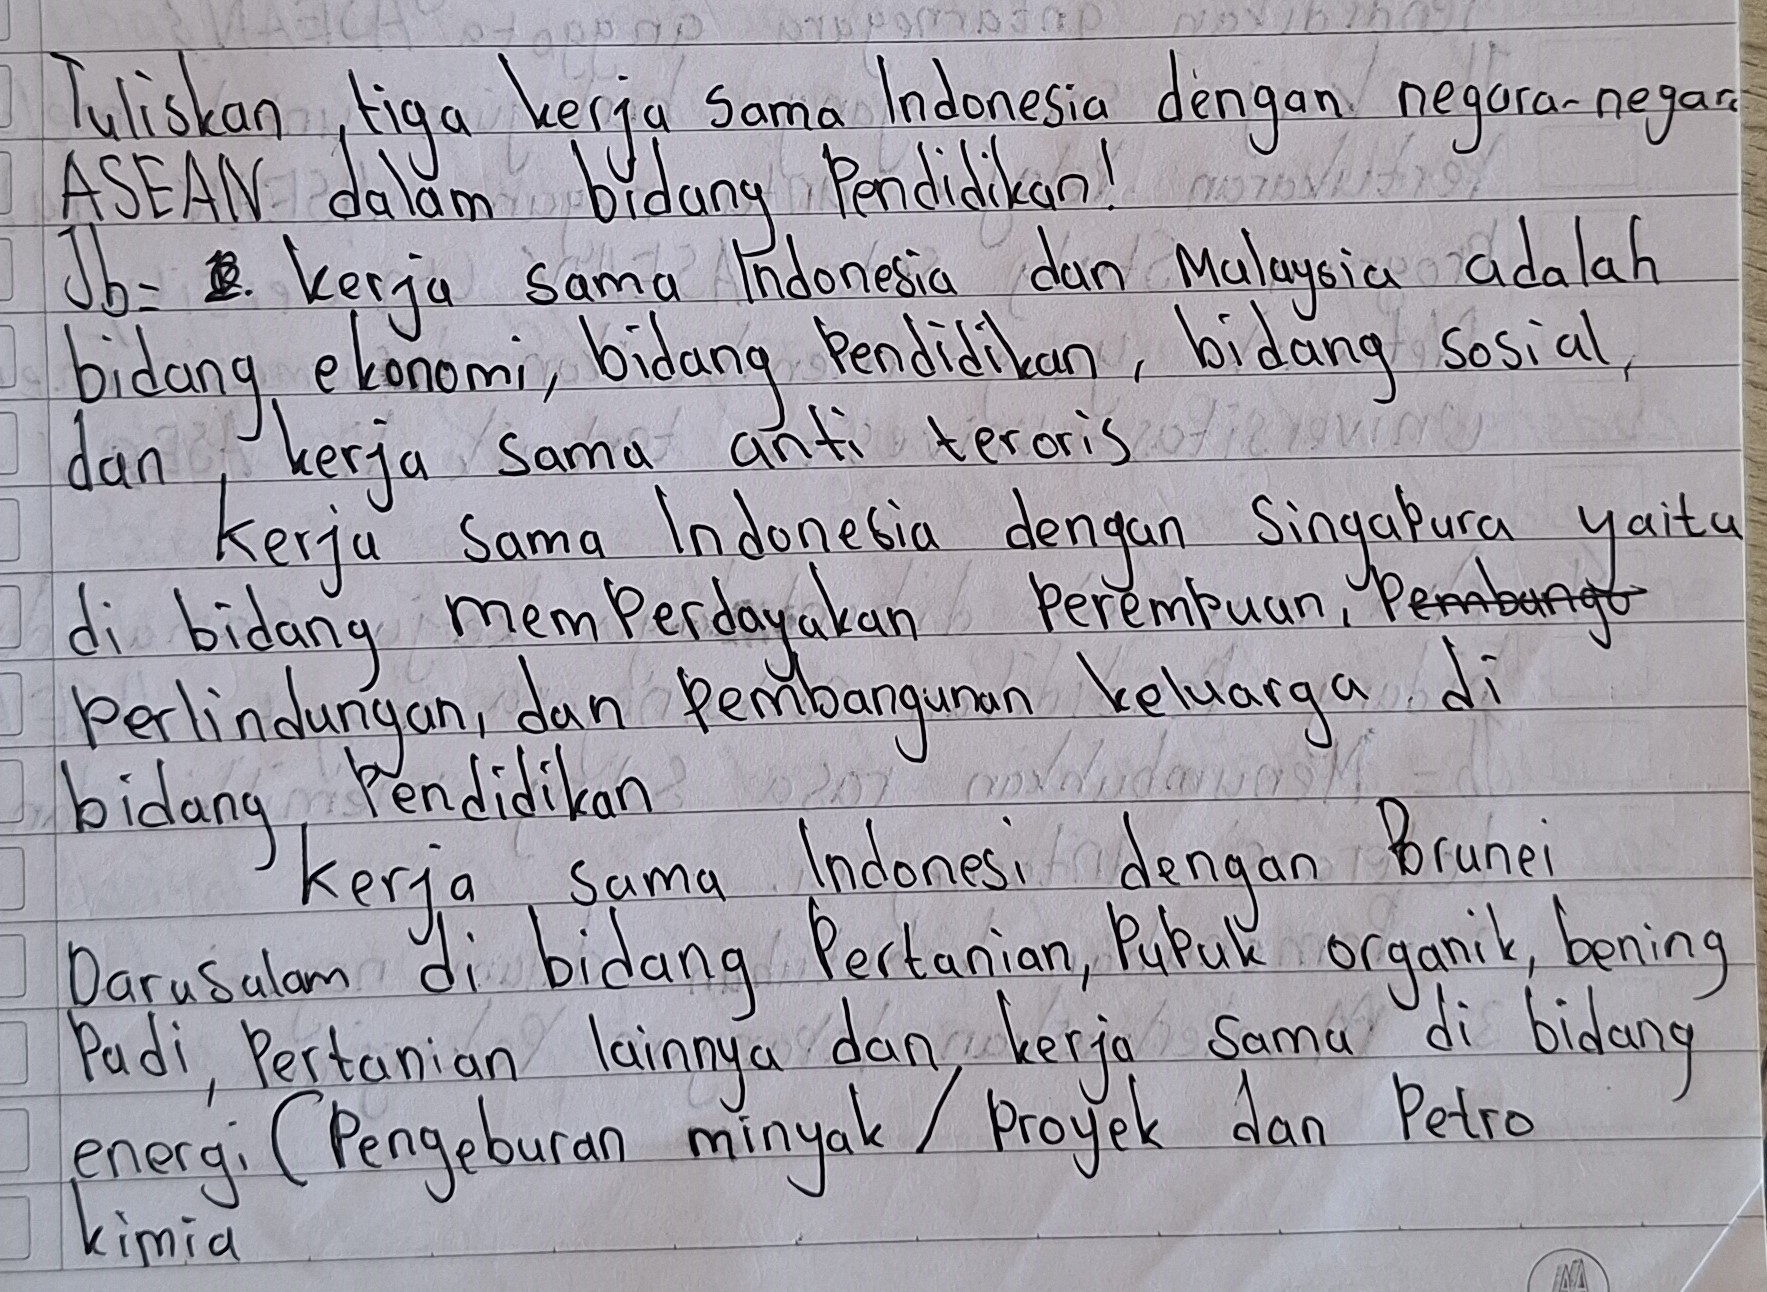 Tuliskan, tiga kerja sama Indonesia dengan negara-negara
ASEAN dalam bidang Pendidikan!
Jb= kerja sama Indonesia dan Malaysia adalah
bidang ekonomi, bidang Pendidikan, bidang sosial,
dan, kerja sama anti teroris
Kerja sama Indonesia dengan Singapura yaitu
di bidang memperdayakan Perempuan, Pembangu
Perlindungan, dan Pembangunan keluarga di
bidang Pendidikan
Kerja sama Indonesi dengan Brunei
Darusalam di bidang Pertanian, Pupuk organik, bening
Padi, Pertanian lainnya dan kerja sama di bidang
energi (Pengeburan minyak / Proyek dan Petro
kimia